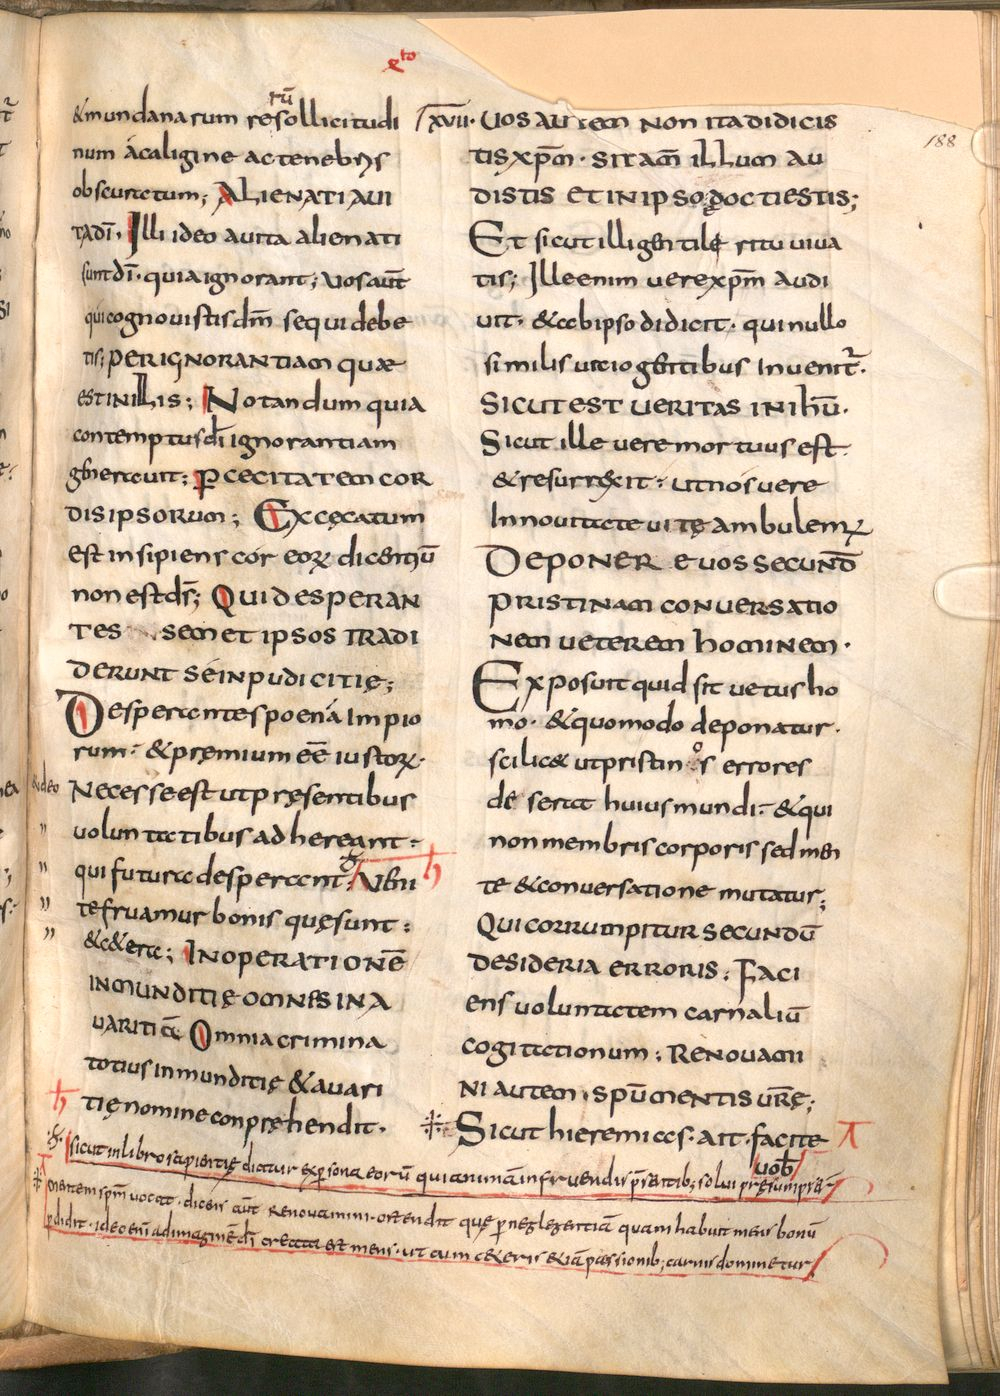 &mundanarum rerū sollicitudi
num a caligine ac tenebris
obscuratum; ALIENATI A UI
TA DĪ. Illi ideo a uita alienati
sunt dī. quia ignorant; Uos aut̄
qui cognouistis dm̄ sequi debe
tis; PER IGNORANTIAM QUAE
EST IN ILLIS; Notandum quia
contemptus dī ignorantiam
generauit; P CECITATEM COR
DIS IPSORUM; Excęcatum
est insipiens cor eoꝝ dicentiū
non est ds̄; QUI DESPERAN
TES SEMET IPSOS TRADI
DERUNT SE INPUDICITIĘ;
Desperantes poenā impio
rum. & pręmium eē iustoꝝ.
&ideo Necesse est ut pręsentibus
uoluntatibus adhereant.
qui futura desperant; Uenite
fruamur bonis quę sunt:
&c&era; IN OPERATIONĒ
INMUNDITIĘ OMNIS IN A
UARITIA Omnia crimina
totius inmunditię & auari
tię nomine conpręhendit.
XVII. UOS AUTEM NON ITA DIDICIS
TIS XPM̄. SI TAM̄ ILLUM AU
DISTIS ET IN IPSO DOCTI ESTIS;
Et sicut illi gentile ritu uiua
tis; Ille enim uere xpm̄ audi
uit. & ab ipso didicit. qui nullo
similis uitio gentibus inuenit̄.
SICUT EST UERITAS IN IHŪ.
Sicut ille uere mortuus est
& resurrexit. ut nos uere
In nouitate uitę ambulemꝰ
DEPONERE UOS SECUND̄
PRISTINAM CONUERSATIO
NEM UETEREM HOMINEM.
Exposuit quid sit uetus ho
mo. & quomodo deponatur.
scilic& ut pristinos errores
deserat huius mundi. & qui
non membris corporis sed men
te & conuersatione mutatur;
QUI CORRUMPITUR SECUNDŪ
DESIDERIA ERRORIS; Faci
ens uoluntatem carnaliū
cogitationum; RENOUAMI
NI AUTEM SPŪ MENTIS UR̄Ę;
Sicut hieremias. ait. facite uob
sicut in libro sapientię dicitur ex persona eorū qui animā in fruendis pr̄sentib; solui pręsumpser
mentem spm̄ uocat. dicens aut̄ Renouamini. ostendit quę p neglegentiā quam habuit mens bonū
pdidit. ideo eni ad imaginē dī creata est mens. ut cum c&eris &iā passionib; carnis dominetur
188